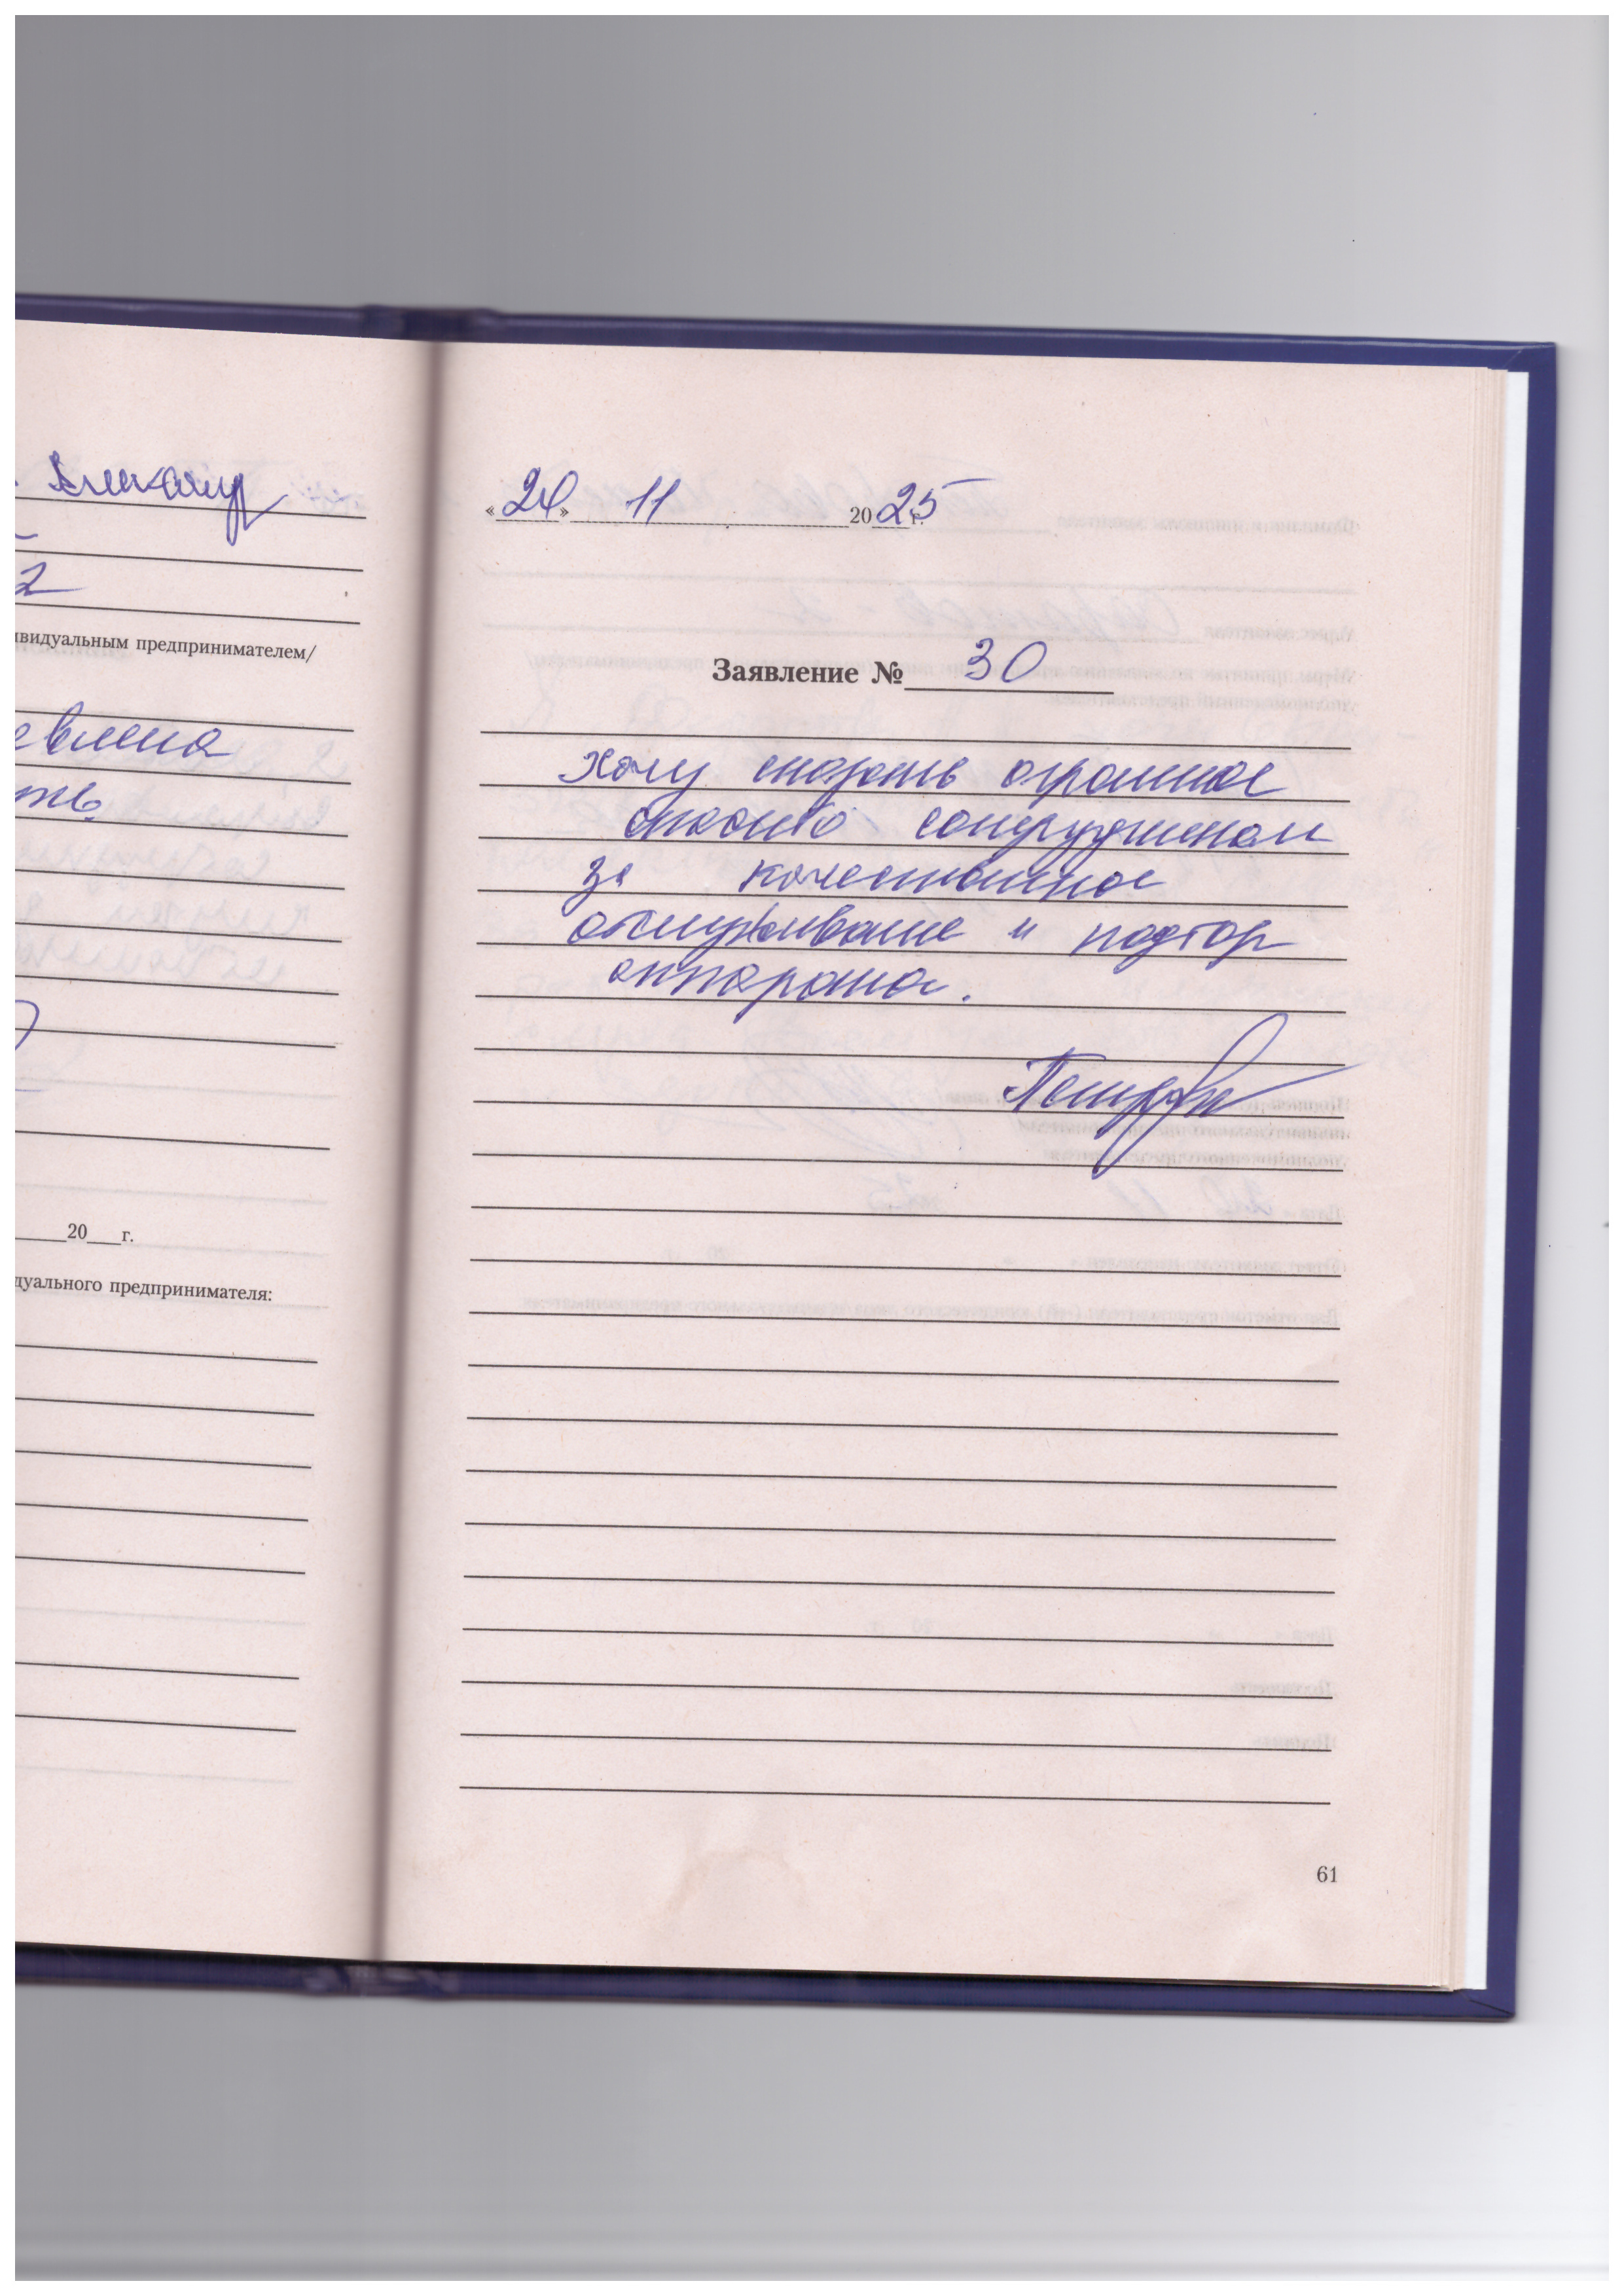 Александр
2
ивидуальным предпринимателем/
евлена
ть.
20 г.
дуального предпринимателя:
« » 11 2025 г.
Заявление № 30
Хочу сказать огромное
спасибо сотрудникам
за качественное
обслуживание и подбор
аппарата.
61